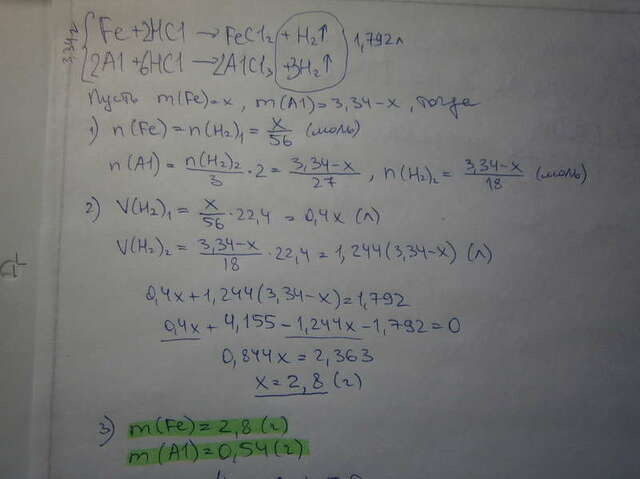 3,34г { Fe + 2HCl → FeCl₂ + H₂↑ 1,792л
2Al + 6HCl → 2AlCl₃ + 3H₂↑
Пусть m(Fe)=x, m(Al)=3,34-x, тогда
1) n(Fe)=n(H₂)₁= x/56 (моль)
n(Al)= n(H₂)₂/3 · 2 = 3,34-x/27 , n(H₂)₂= 3,34-x/18 (моль)
2) V(H₂)₁= x/56 · 22,4 = 0,4x (л)
V(H₂)₂= 3,34-x/18 · 22,4 = 1,244(3,34-x) (л)
0,4x + 1,244(3,34-x)=1,792
0,4x + 4,155 - 1,244x - 1,792=0
0,844x = 2,363
x = 2,8 (г)
3) m(Fe)=2,8(г)
m(Al)=0,54(г)